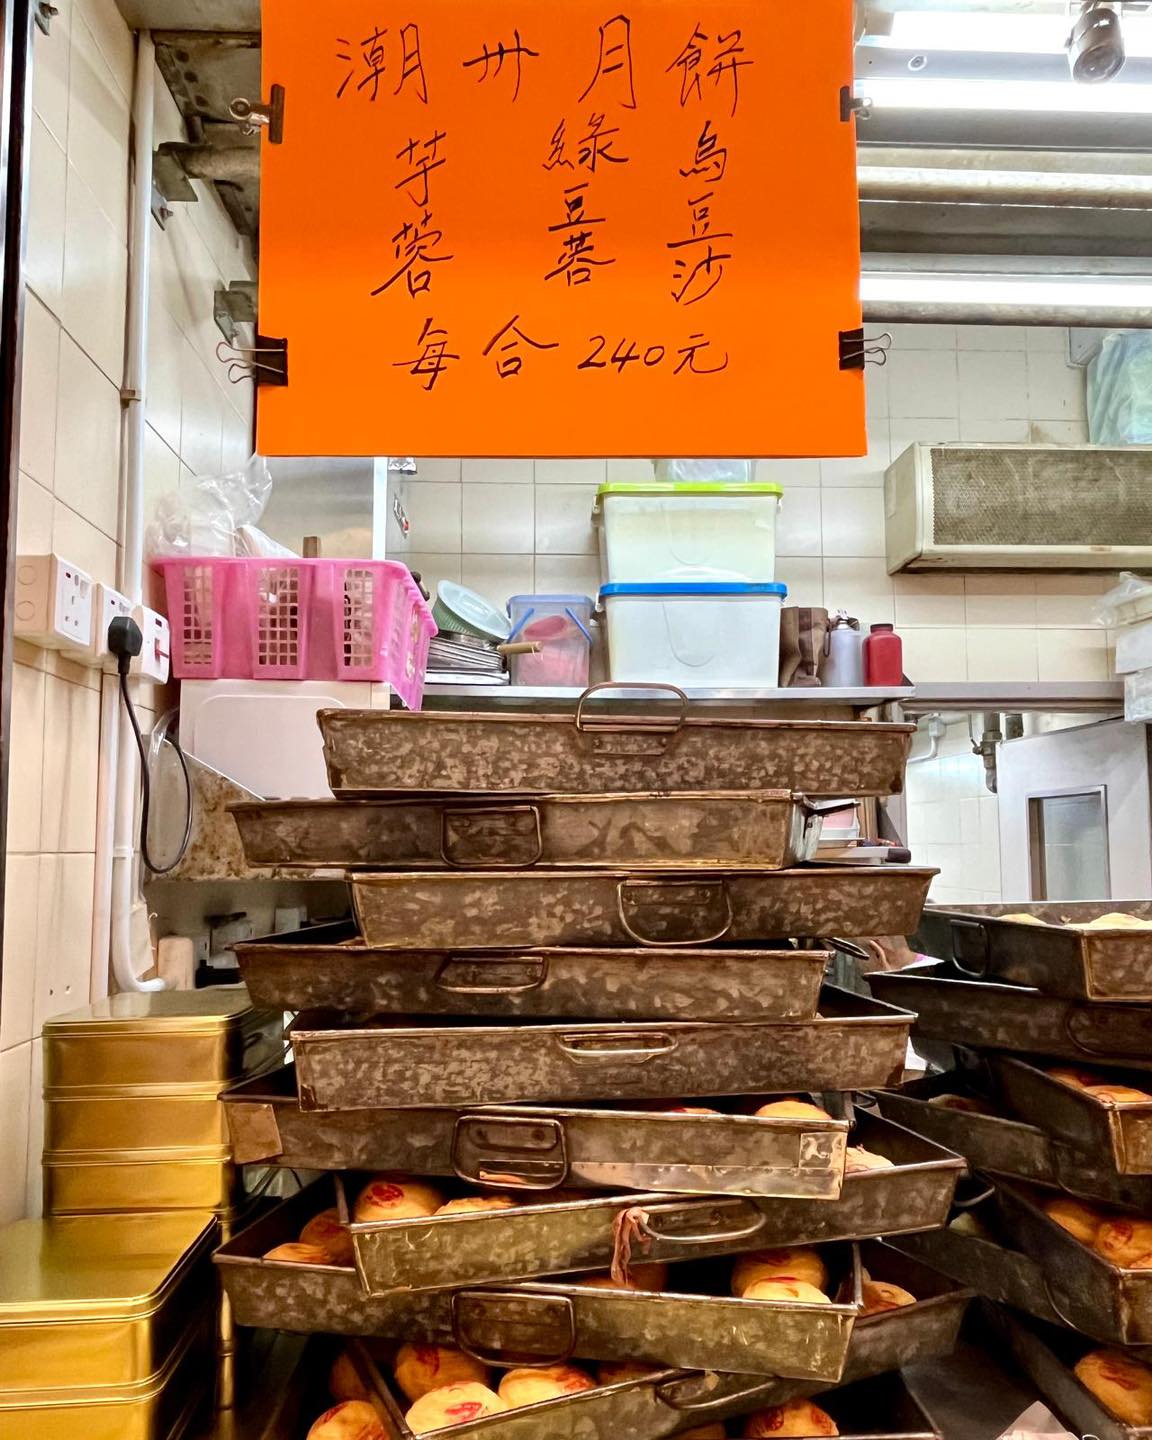 潮州月餅
烏豆沙
綠豆蓉
芋蓉
每合240元